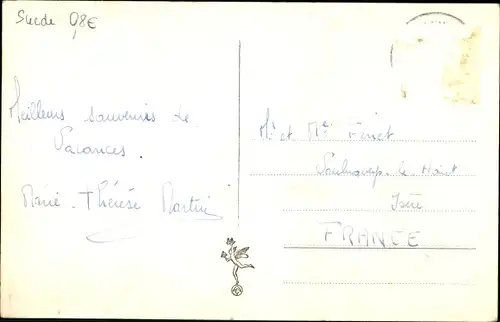 Suede 0,8€
Meilleurs souvenirs de
Vacances.
Marie-Thérèse Martin
Mr et Me Finet
le Haut
Isère
FRANCE